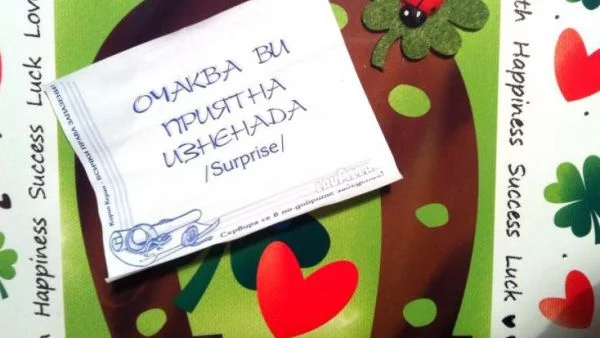 ОЧАКВА ВИ
ПРИЯТНА
ИЗНЕНАДА
/Surprise/
Сервира се в по-добрите заведения!
ВСИЧКИ ПРАВА ЗАПАЗЕНИ!
Happiness Success Luck Love
Health Happiness Success Luck